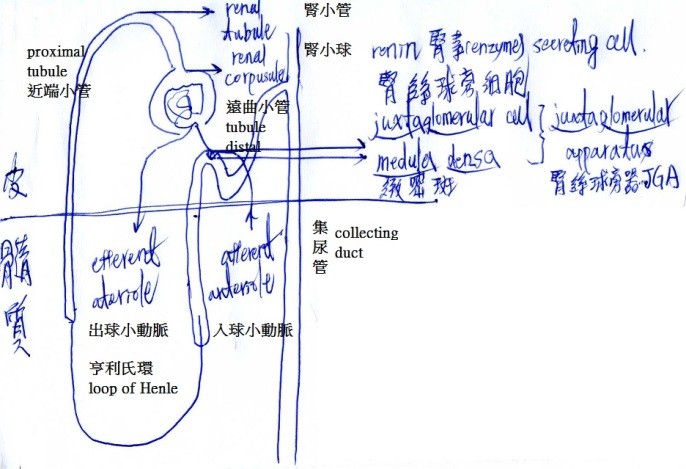 renal
tubule
腎小管
renal
corpusule
腎小球
proximal
tubule
近端小管
遠曲小管
tubule
distal
renin 腎素(enzyme) secreting cell.
腎絲球旁細胞
juxtaglomerular cell
medula densa
緻密斑
juxtaglomerular
apparatus
腎絲球旁器JGA
皮
髓
質
efferent
ateriole
出球小動脈
afferent
anteriole
入球小動脈
集
尿
管
collecting
duct
亨利氏環
loop of Henle